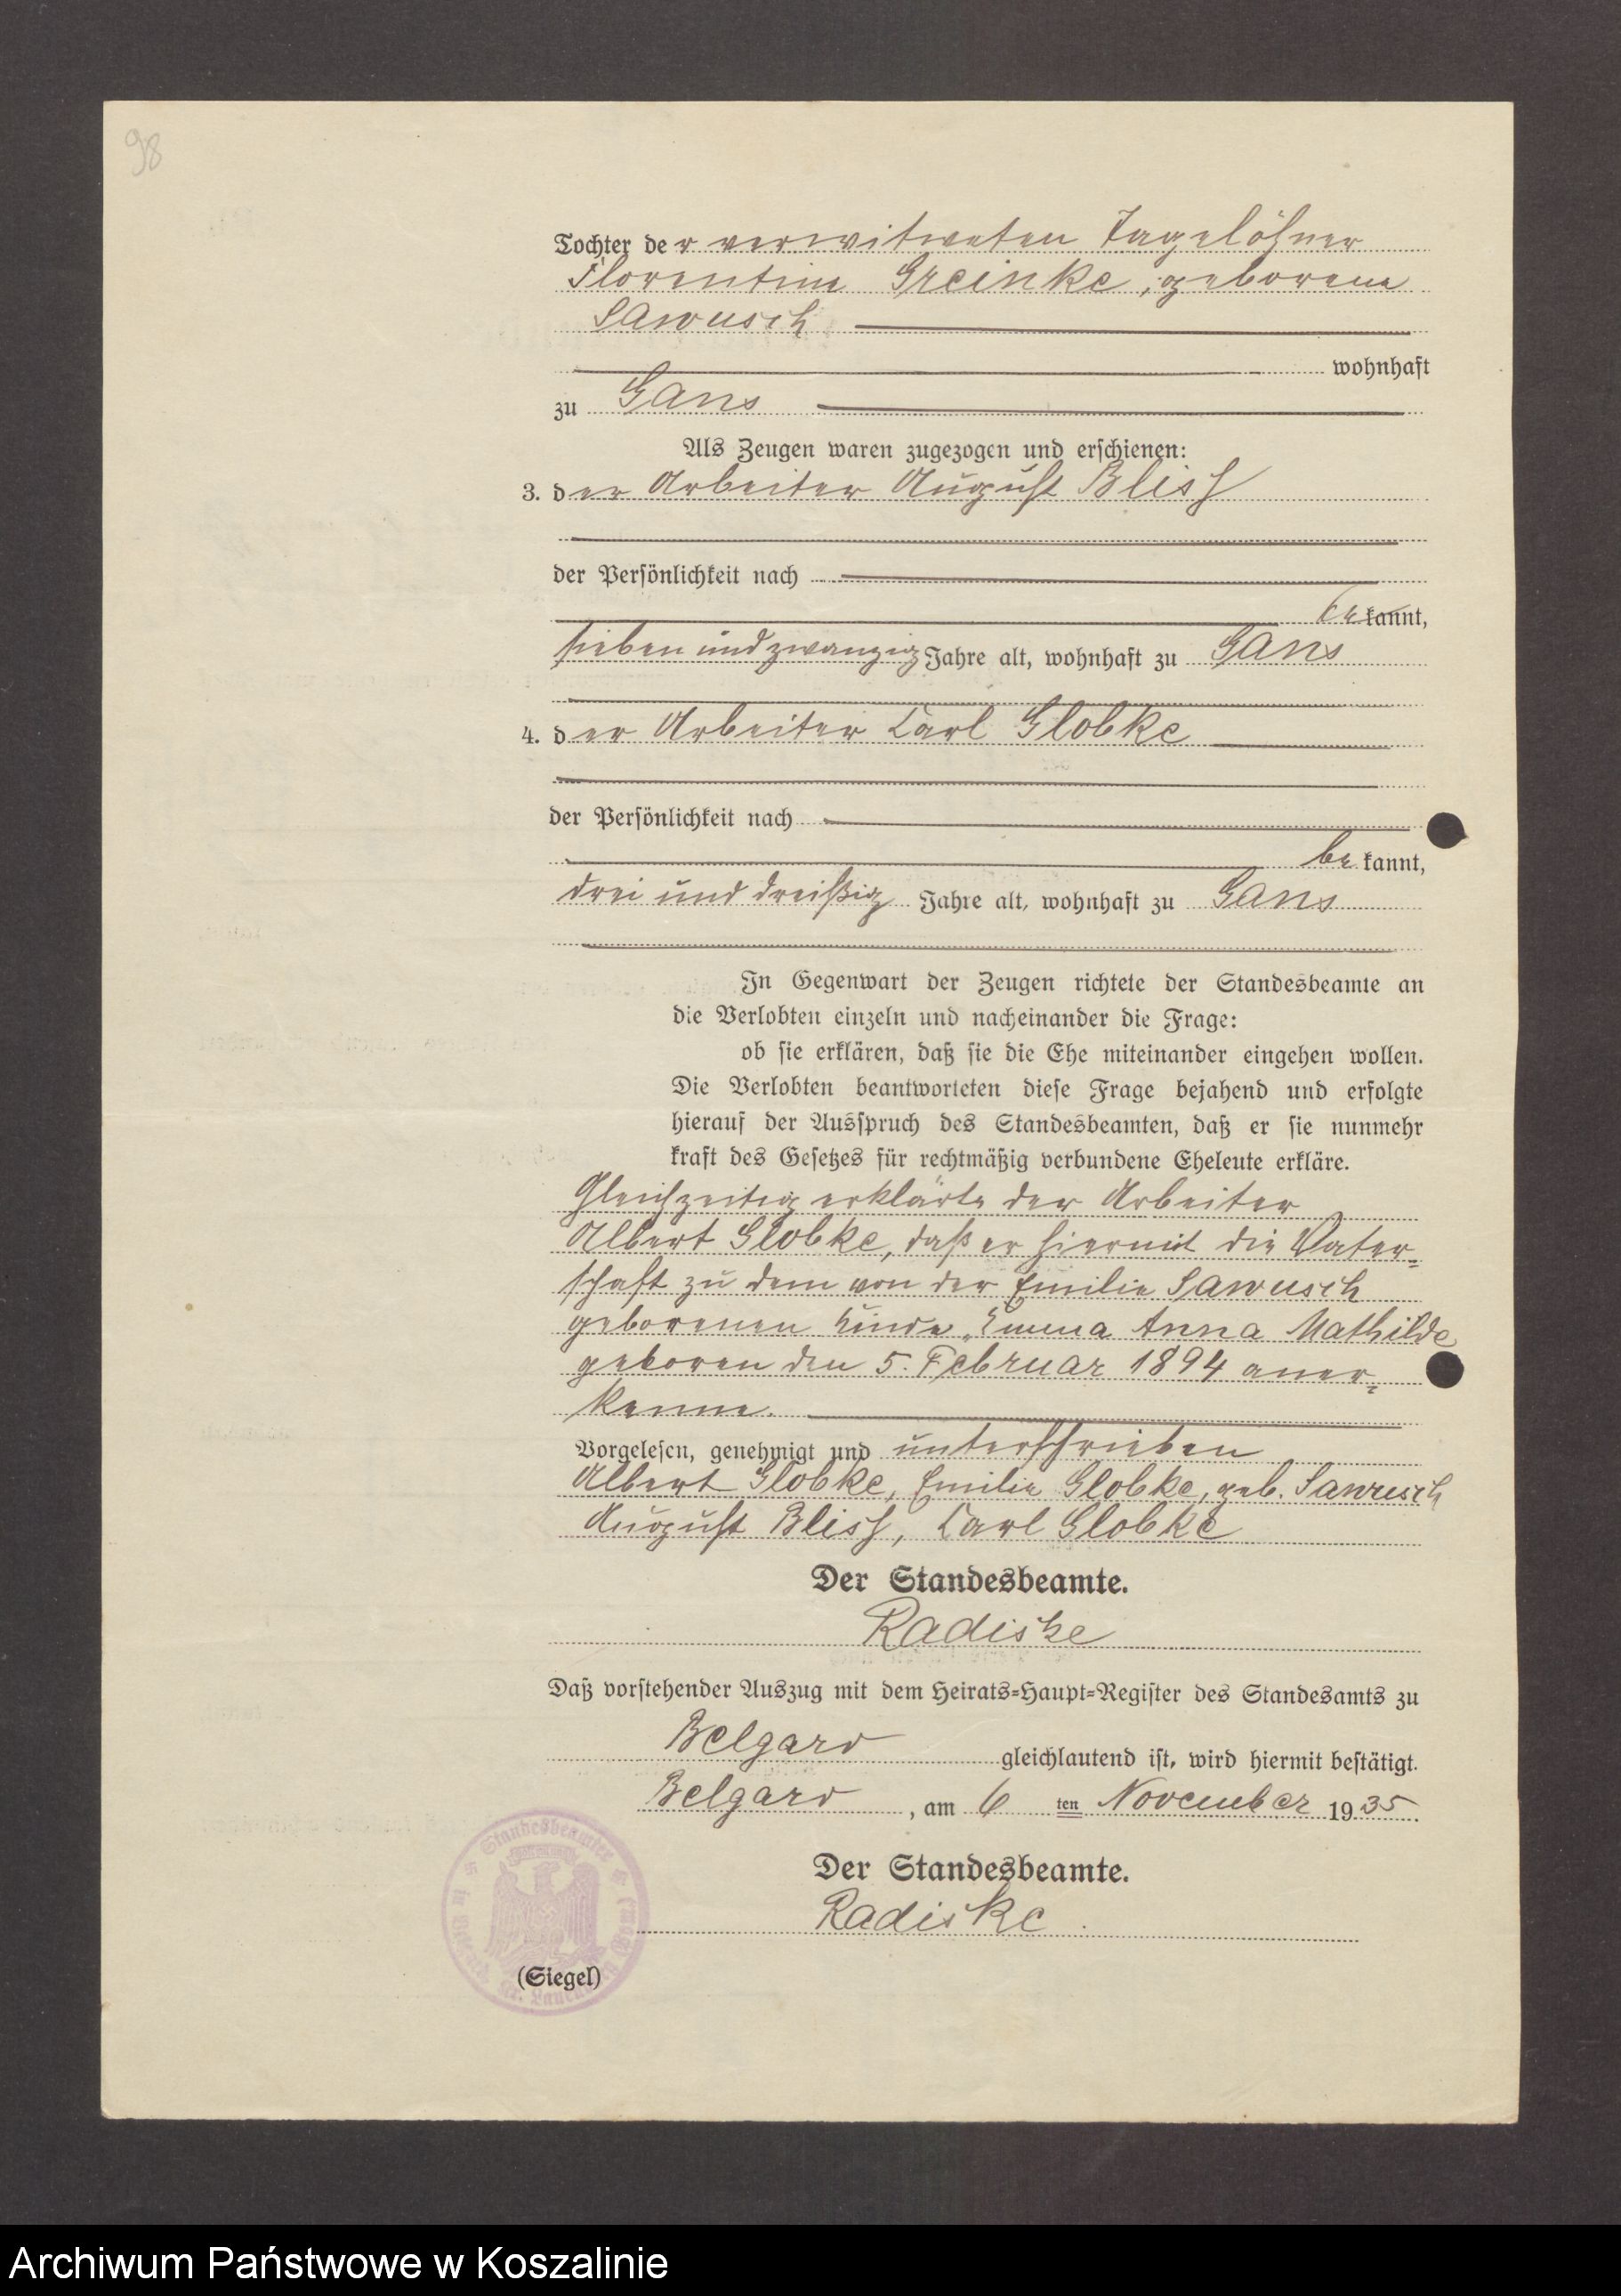 98
Tochter der verwitweten Tagelöhner
Florentine Greinke, geborene
Sawusch
wohnhaft
zu Gans
Als Zeugen waren zugezogen und erschienen:
3. der Arbeiter August Bliss
der Persönlichkeit nach
bekannt,
sieben und zwanzig Jahre alt, wohnhaft zu Gans
4. der Arbeiter Carl Globke
der Persönlichkeit nach
be kannt,
drei und dreißig Jahre alt, wohnhaft zu Gans
In Gegenwart der Zeugen richtete der Standesbeamte an
die Verlobten einzeln und nacheinander die Frage:
ob sie erklären, daß sie die Ehe miteinander eingehen wollen.
Die Verlobten beantworteten diese Frage bejahend und erfolgte
hierauf der Ausspruch des Standesbeamten, daß er sie nunmehr
kraft des Gesetzes für rechtmäßig verbundene Eheleute erkläre.
Gleichzeitig erklärte der Arbeiter
Albert Globke, daß er hiermit die Vater-
schaft zu dem von der Emilie Sawusch
geborenen Kinde, Emma Anna Mathilde
geboren den 5. Februar 1894 aner-
kenne.
Vorgelesen, genehmigt und unterschrieben
Albert Globke, Emilie Globke, geb. Sawusch
August Bliss, Carl Globke
Der Standesbeamte.
Radiske
Daß vorstehender Auszug mit dem Heirats-Haupt-Register des Standesamts zu
Belgard gleichlautend ist, wird hiermit bestätigt.
Belgard, am 6 ten November 1935.
Der Standesbeamte.
Radiske
Standesbeamter
Kr. Lauenburg
(Siegel)
Archiwum Państwowe w Koszalinie